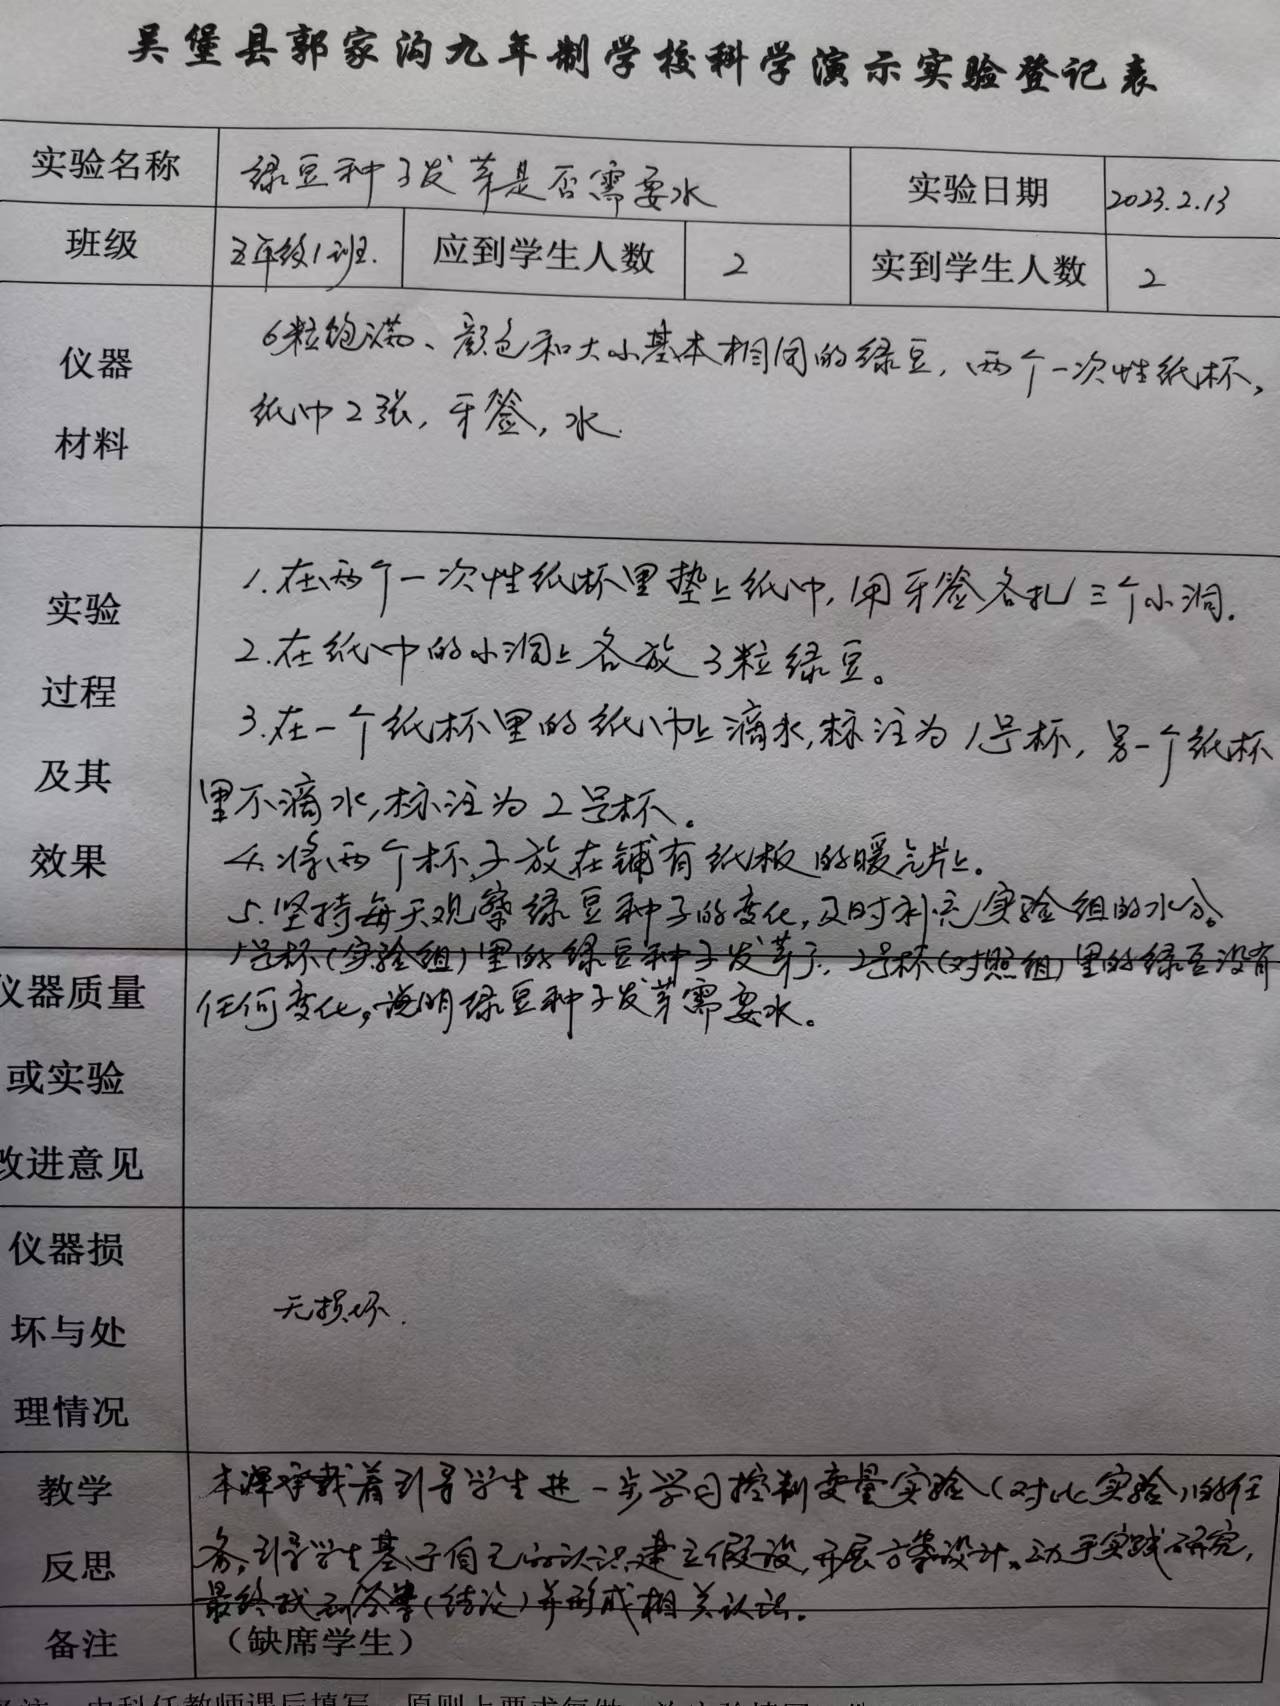 吴堡县郭家沟九年制学校科学演示实验登记表
实验名称 绿豆种子发芽是否需要水 实验日期 2023.2.13
班级 五年级1班. 应到学生人数 2 实到学生人数 2
仪器
材料
6粒饱满、颜色和大小基本相同的绿豆,两个一次性纸杯,
纸巾2张,牙签,水.
实验
过程
及其
效果
1.在两个一次性纸杯里垫上纸巾,用牙签各扎三个小洞.
2.在纸巾的小洞上各放3粒绿豆。
3.在一个纸杯里的纸巾上滴水,标注为1号杯,另一个纸杯
里不滴水,标注为2号杯。
4.将两个杯子放在铺有纸板的暖气片上。
5.坚持每天观察绿豆种子的变化,及时补充实验组的水分。
1号杯(实验组)里的绿豆种子发芽了,2号杯(对照组)里的绿豆没有
任何变化,说明绿豆种子发芽需要水。
仪器质量
或实验
改进意见
仪器损
坏与处
理情况
无损坏.
教学
反思
本课承载着引导学生进一步学习控制变量实验(对比实验)的任
务,引导学生基于自己的认识建立假设,开展方案设计、动手实践研究,
最终找到答案(结论)并形成相关认识。
备注 (缺席学生)